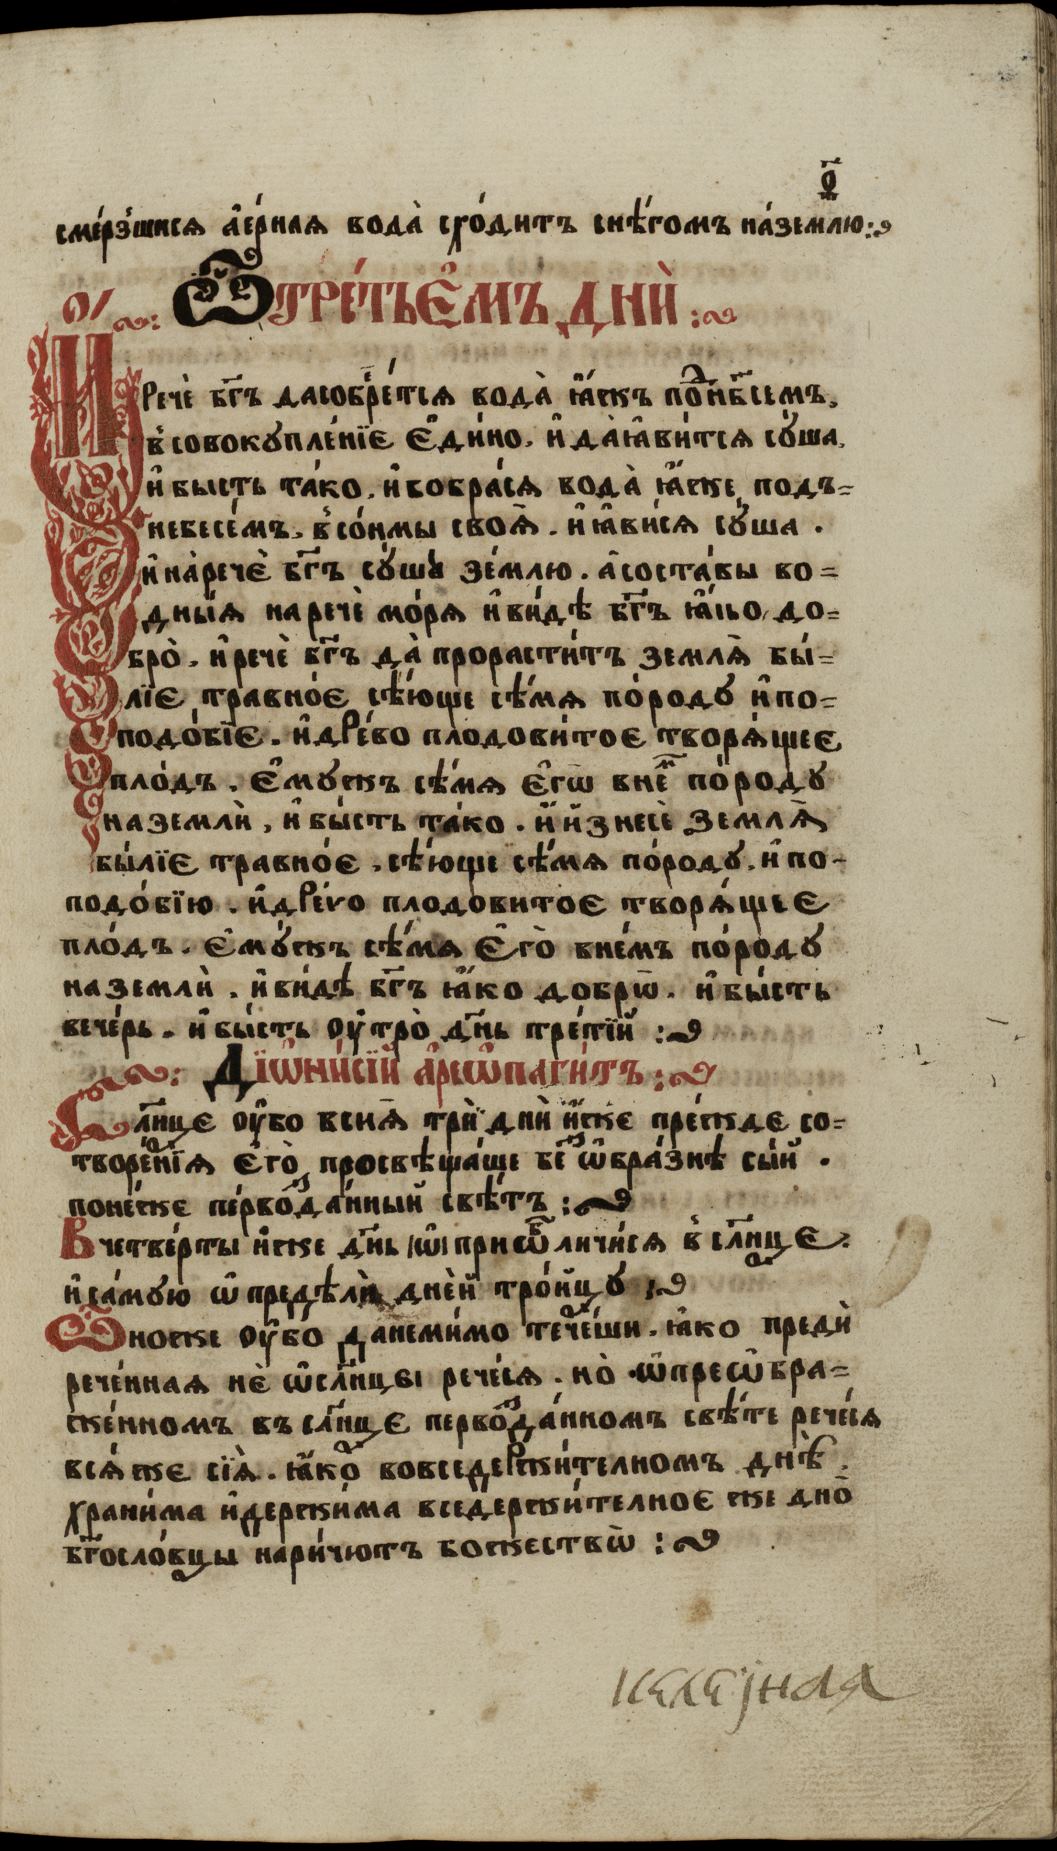 ѻ҃
смерзшися а҆ерная вода̀ схо́дитъ снѣ́гомъ на́землю :
Ѡ҆ тре́тьемъ днѝ :
И҆ речѐ бг҃ъ дасобере́тся вода̀ ꙗ҆́жъ под̾нб҃семъ,
в̾совокупле́нїе є҆ди́но, и҆ да̀ ꙗ҆ви́тся су́ша,
и҆ бысть та́ко, и҆ вобра́ся вода̀ ꙗ҆́же подъ=
небесе́мъ, в̾со́нмы своѧ̀. и҆ ꙗ҆ви́ся су́ша.
и҆ на́речѐ бг҃ъ су́шу зе́млю. а҆ соста́вы во=
дны́я наречѐ мо́ря и҆ ви́дѣ бг҃ъ ꙗ҆́ко до=
бро̀. и҆ речѐ бг҃ъ да̀ прорасти́тъ земля̀ бы́=
лїе травно́е сѣ́юще сѣ́мя по́роду и҆ по=
подо́бїе. и҆ дре́во плодови́тое творя́щее
пло́дъ. є҆мужъ сѣ́мя є҆гѡ̀ вне́м по́роду
на землѝ, и҆ бы́сть та́ко. и҆ и҆знесѐ земля̀
бы́лїе травно́е, сѣ́юще сѣ́мя по́роду, и҆ по-
подо́бїю. и҆ дре́во плодовитое творя́щее
пло́дъ. є҆му́жъ сѣ́мя є҆го̀ вне́мъ по́роду
на землѝ. и҆ ви́дѣ бг҃ъ ꙗ҆́ко добрѡ̀. и҆ бы́сть
вече́рь. и҆ бы́сть ѹ҆́тро̀ дн҃ь тре́тїй :
Дїѡни́сїй а҆реѡпаги́тъ :
Сл҃нце ѹ҆́бо всия̀ трѝ днѝ и҆́же пре́жде со=
творе́нїя є҆го̀ просвѣща́ше без̾ѡ҆бра́знѣ сы́й.
поне́же первоз̾да́нный свѣ́тъ :
В четве́рты и҆́же дн҃ь ѡ҆ приѡб̾личи́ся в̾ сл҃нце.
и҆ са́мую ѡ҆предѣлѝ дне́й тро́йцу :
Ѡ҆ноже ѹ҆́бо̀ да немимо тече́ши. ꙗ҆́ко предѝ
рече́нная нѐ ѡ҆ сл҃нцеі рече́ся. но̀ ѡ҆ преѡ҆бра=
же́нномъ въ сл҃нце первоз̾да́нномъ свѣ́те рече́ся
вся́же сїя̀. ꙗ҆́ко вовседержи́телномъ днѣ̀.
храни́ма и҆ держи́ма вседержи́телное же дно̀
бг҃осло́вцы нари́чютъ божествѡ̀ :